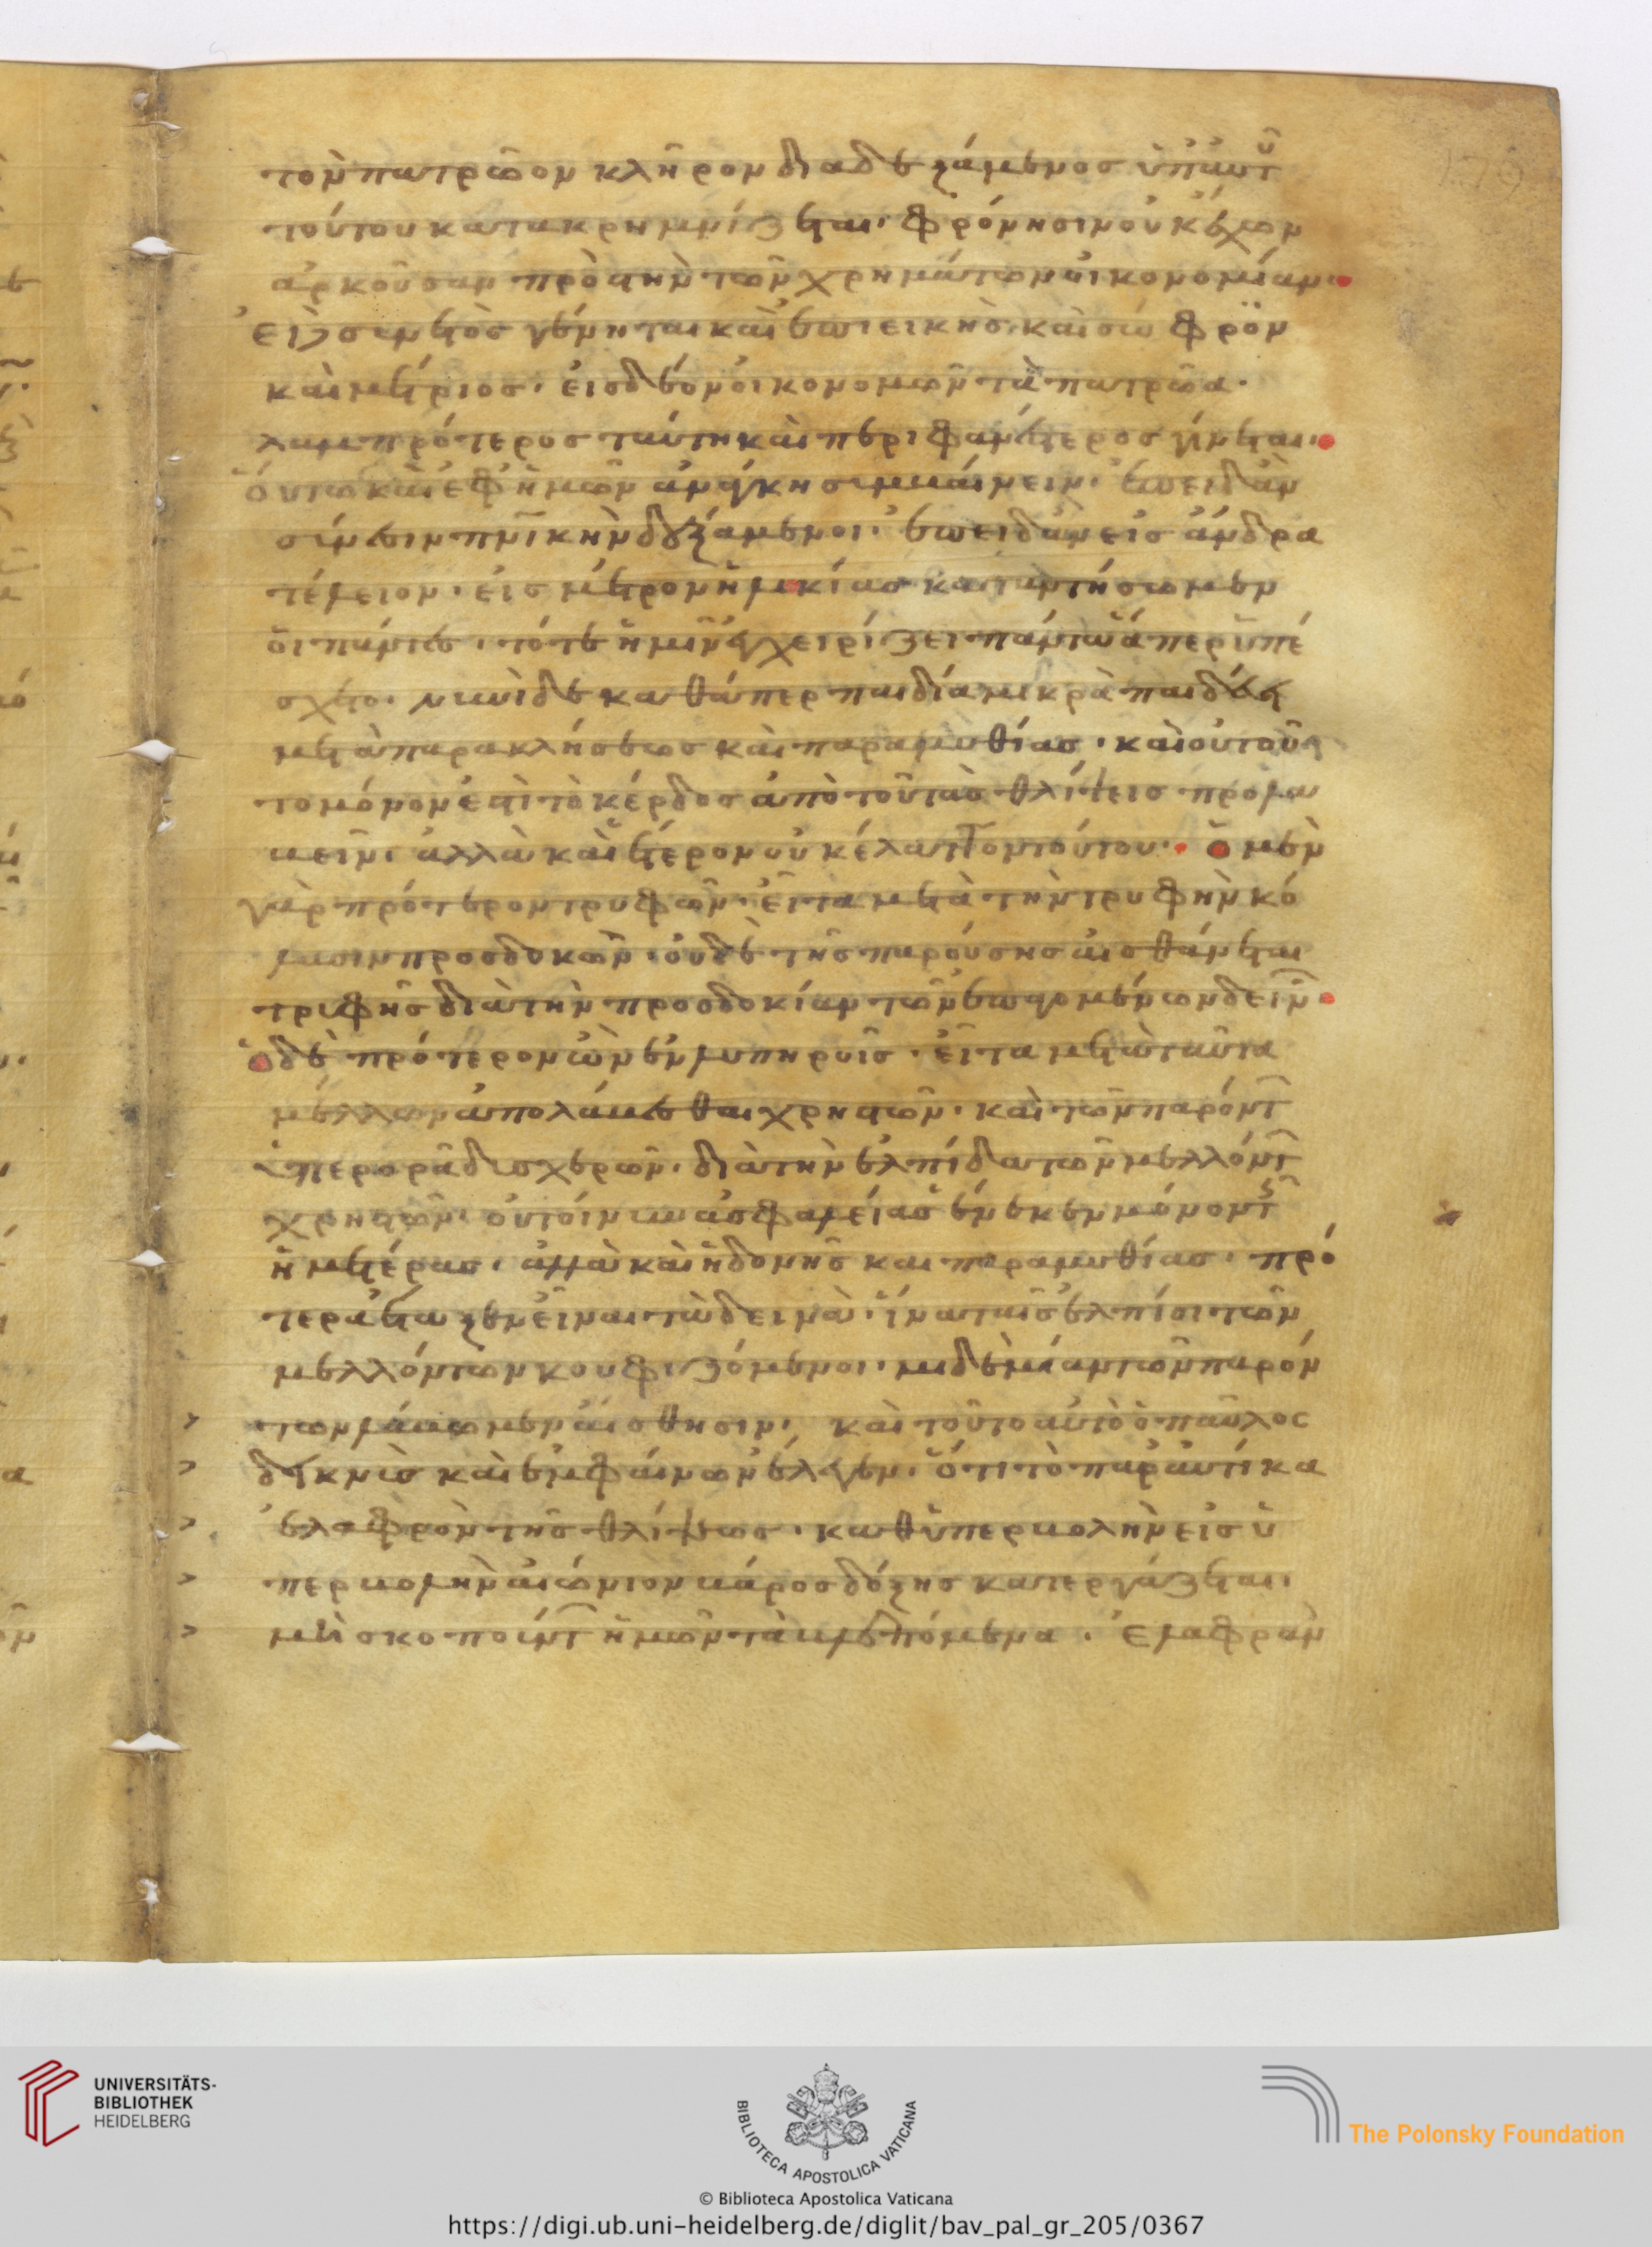 τὸν πατρῶον κλῆρον διαδεξάμενος ὑπ' αὐτοῦ
τούτου κατακρημνίζεται· φρόνησιν οὐκ ἔχων
ἀρκοῦσαν πρὸς τὴν τῶν χρημάτων οἰκονομίαν·
ἐὰν συνετὸς γένηται καὶ ἐπιεικὴς καὶ σώφρον
καὶ μέτριος· εἰς δέον οἰκονομῶν τὰ πατρῶα·
λαμπρότερος ταύτη καὶ περιφανέστερος γίνεται·
οὕτω καὶ ἐφ' ἡμῶν ἀνάγκη συμβαίνειν· ἐπειδὰν
σύνεσιν πνικὴν δεξάμενοι· ἐπειδὰν εἰς ἄνδρα
τέλειον· εἰς μέτρον ἡλικίας καταντήσωμεν
οἱ πάντες· τότε ἡμῖν ἐγχειρίζει πάνθ' ἅπερ ὑπέ
σχετο· νυνὶ δὲ καθάπερ παιδία μικρὰ παιδεύει
μετὰ παρακλήσεως καὶ παραμυθίας· καὶ οὐ τοῦ
το μόνον ἐστὶ τὸ κέρδος ἀπὸ τοῦ τὰς θλίψεις προλα
βεῖν· ἀλλὰ καὶ ἕτερον οὐκ ἔλαττον τούτου· ὁ μὲν
γὰρ πρότερον τρυφῶν· εἶτα μετὰ τὴν τρυφὴν κό
λασιν προσδοκῶν· οὐδὲ τῆς παρούσης αἰσθάνεται
τρυφῆς διὰ τὴν προσδοκίαν τῶν ἐπαγομένων δεινῶν·
ὁ δὲ πρότερον ὢν ἐν λυπηροῖς· εἶτα μετὰ ταῦτα
μέλλων ἀπολαύεσθαι χρηστῶν· καὶ τῶν παρόντων
ὑπερορᾷ δυσχερῶν· διὰ τὴν ἐλπίδα τῶν μελλόντων
χρηστῶν· οὐ τοίνυν ἀσφαλείας ἕνεκεν μόνον τῆς
ἡμετέρας· ἀλλὰ καὶ ἡδονῆς καὶ παραμυθίας· πρό
τερα ἔταξεν εἶναι τὰ δεινὰ· ἵνα ταῖς ἐλπίσι τῶν
μελλόντων κουφιζόμενοι· μηδεμίαν τῶν παρόν
των λάβωμεν αἴσθησιν· καὶ τοῦτο αὐτὸ ὁ παῦλος
δεικνὺς καὶ ἐμφαίνων ἔλεγεν· ὅτι τὸ παραυτίκα
ἐλαφρὸν τῆς θλίψεως· καθ' ὑπερβολὴν εἰς ὑ
περβολὴν αἰώνιον βάρος δόξης κατεργάζεται·
μὴ σκοπούντων ἡμῶν τὰ βλεπόμενα· ἐλαφρὰν
UNIVERSITÄTS-
BIBLIOTHEK
HEIDELBERG
BIBLIOTECA APOSTOLICA VATICANA
The Polonsky Foundation
© Biblioteca Apostolica Vaticana
https://digi.ub.uni-heidelberg.de/diglit/bav_pal_gr_205/0367